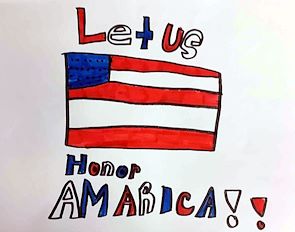 Let us
Honor
AMARICA!!